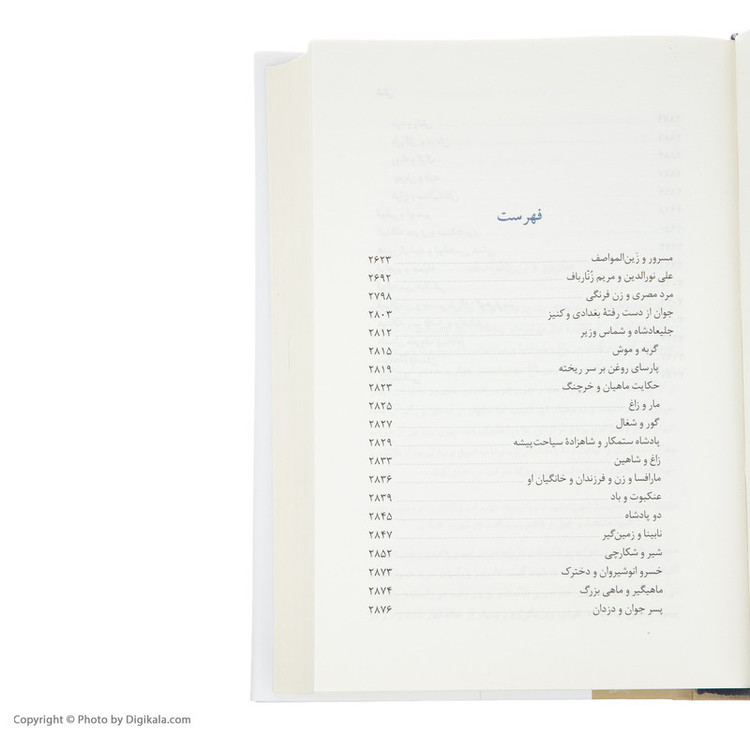 فهرست
مسرور و زَین‌المواصف ۲۶۲۳
علی نورالدین و مریم زُنّارباف ۲۶۹۲
مرد مصری و زن فرنگی ۲۷۹۸
جوان از دست رفتهٔ بغدادی و کنیز ۲۸۰۳
جلیعادشاه و شماس وزیر ۲۸۱۲
گربه و موش ۲۸۱۵
پارسای روغن بر سر ریخته ۲۸۱۹
حکایت ماهیان و خرچنگ ۲۸۲۳
مار و زاغ ۲۸۲۵
گور و شغال ۲۸۲۷
پادشاه ستمکار و شاهزادهٔ سیاحت‌پیشه ۲۸۲۹
زاغ و شاهین ۲۸۳۳
مارافسا و زن و فرزندان و خانگیان او ۲۸۳۶
عنکبوت و باد ۲۸۳۹
دو پادشاه ۲۸۴۵
نابینا و زمین‌گیر ۲۸۴۷
شیر و شکارچی ۲۸۵۲
خسرو انوشیروان و دخترک ۲۸۷۳
ماهیگیر و ماهی بزرگ ۲۸۷۴
پسر جوان و دزدان ۲۸۷۶
Copyright © Photo by Digikala.com